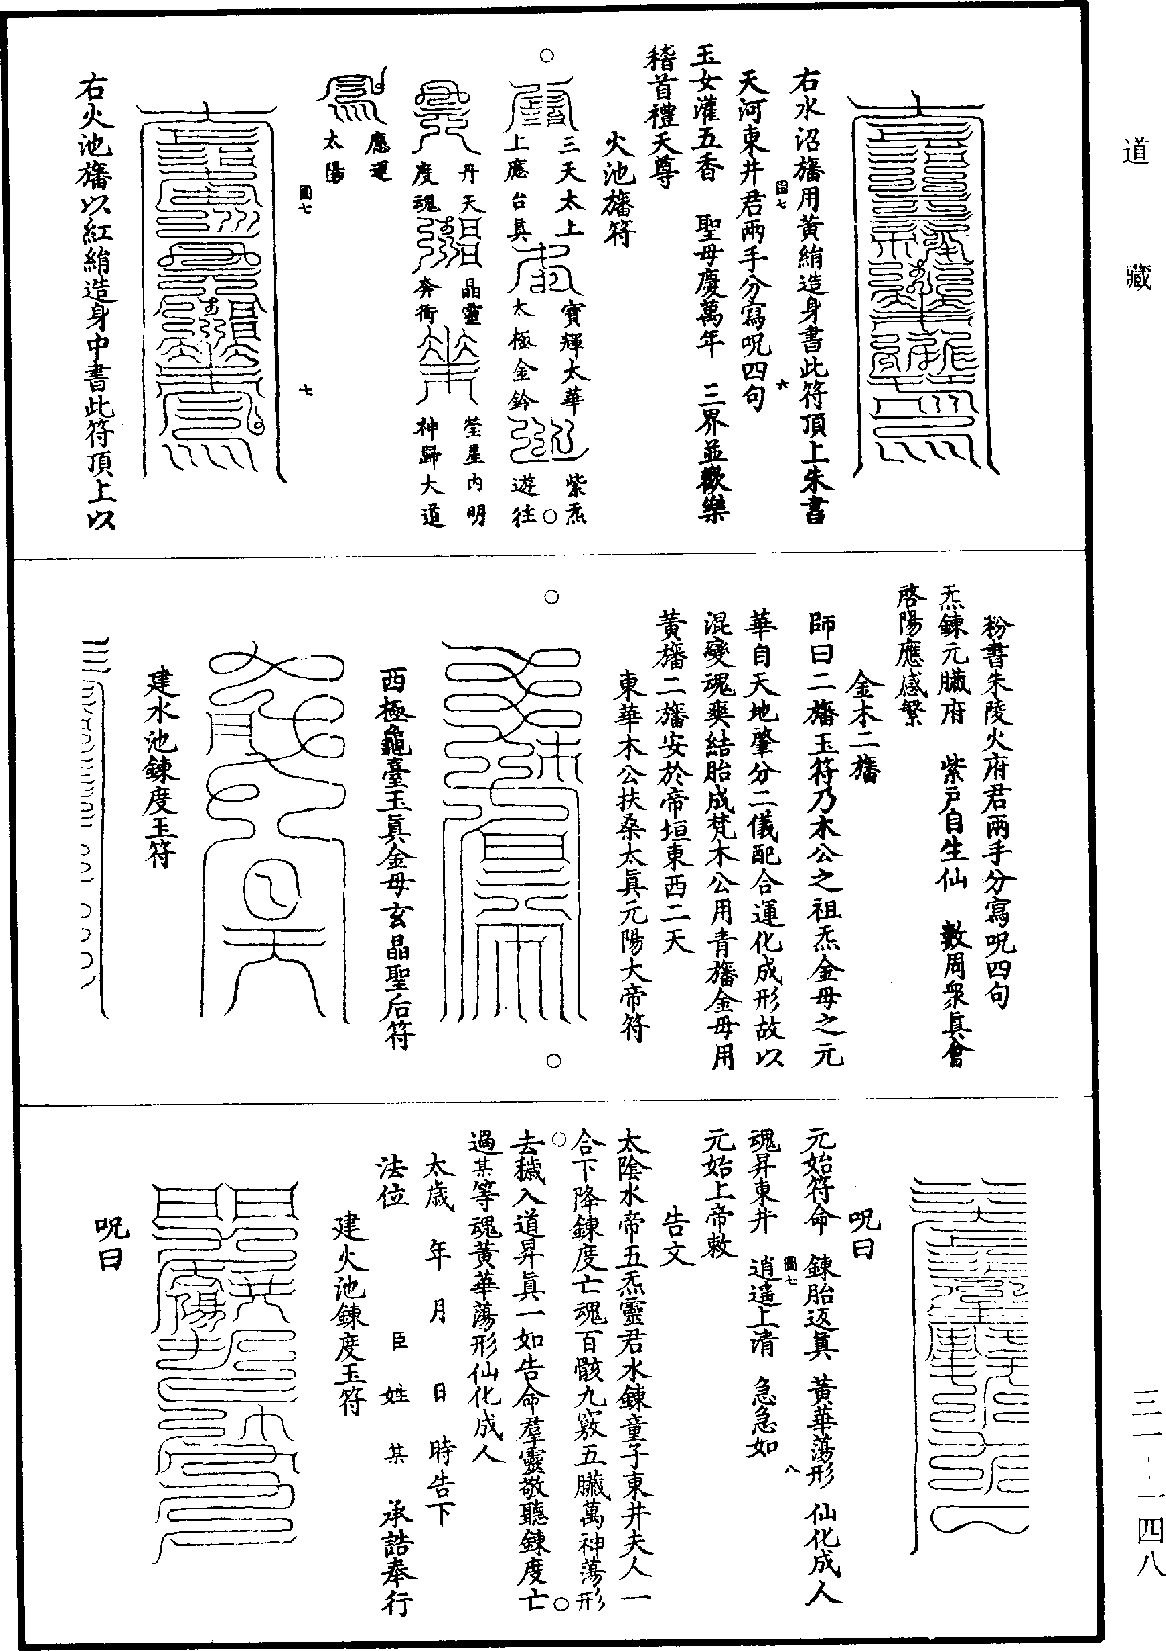 道藏
三一·一四八
右水沼旛用黃絹造身書此符頂上朱書
天河東井君兩手分寫呪四句
玉女灌五香　聖母慶萬年　三界並歡樂
稽首禮天尊
火池旛符
三天太上
上應台真
寶輝太華
太極金鈐
紫炁
遊往
丹天
度魂
晶靈
奔衛
瑩星內明
神歸大道
應運
太陽
右火池旛以紅絹造身中書此符頂上以
粉書朱陵火府君兩手分寫呪四句
炁鍊元臟府　紫戶自生仙　數周衆真會
啓陽應感繁
金木二旛
師曰二旛玉符乃木公之祖炁金母之元
華自天地肇分二儀配合運化成形故以
混變魂爽結胎成梵木公用青旛金母用
黃旛二旛安於帝垣東西二天
東華木公扶桑太真元陽大帝符
西極龜臺玉真金母玄晶聖后符
建水池鍊度玉符
呪曰
元始符命　鍊胎返真　黃華蕩形　仙化成人
魂昇東井　逍遙上清　急急如
元始上帝敕
告文
太陰水帝五炁靈君水鍊童子東井夫人一
合下降鍊度亡魂百骸九竅五臟萬神蕩形
去穢入道昇真一如告命羣靈敬聽鍊度亡
過某等魂黃華蕩形仙化成人
太歲　年　月　日　時告下
法位　臣　姓　某　承誥奉行
建火池鍊度玉符
呪曰